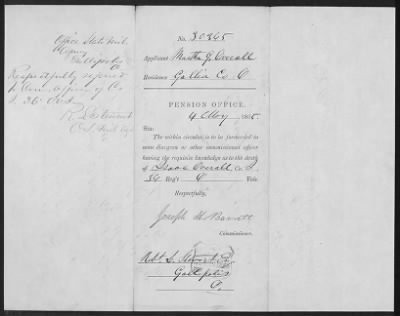 Office State Mil.
Agency
Gallipolis
O.
Respectfully referred
to Com. officer of Co
I. 36 O.V.I.
No. 30365
Applicant Martha J. Overall
Residence Gallia Co. O
PENSION OFFICE,
4 May
Sir:
The within circular is to be forwarded to
some surgeon or other commissioned officer
having the requisite knowledge as to the death
of Isaac Overall Co. I.
36 Reg't O Vols.
Respectfully,
Joseph H Barrett
Commissioner.
Gallipolis
O.